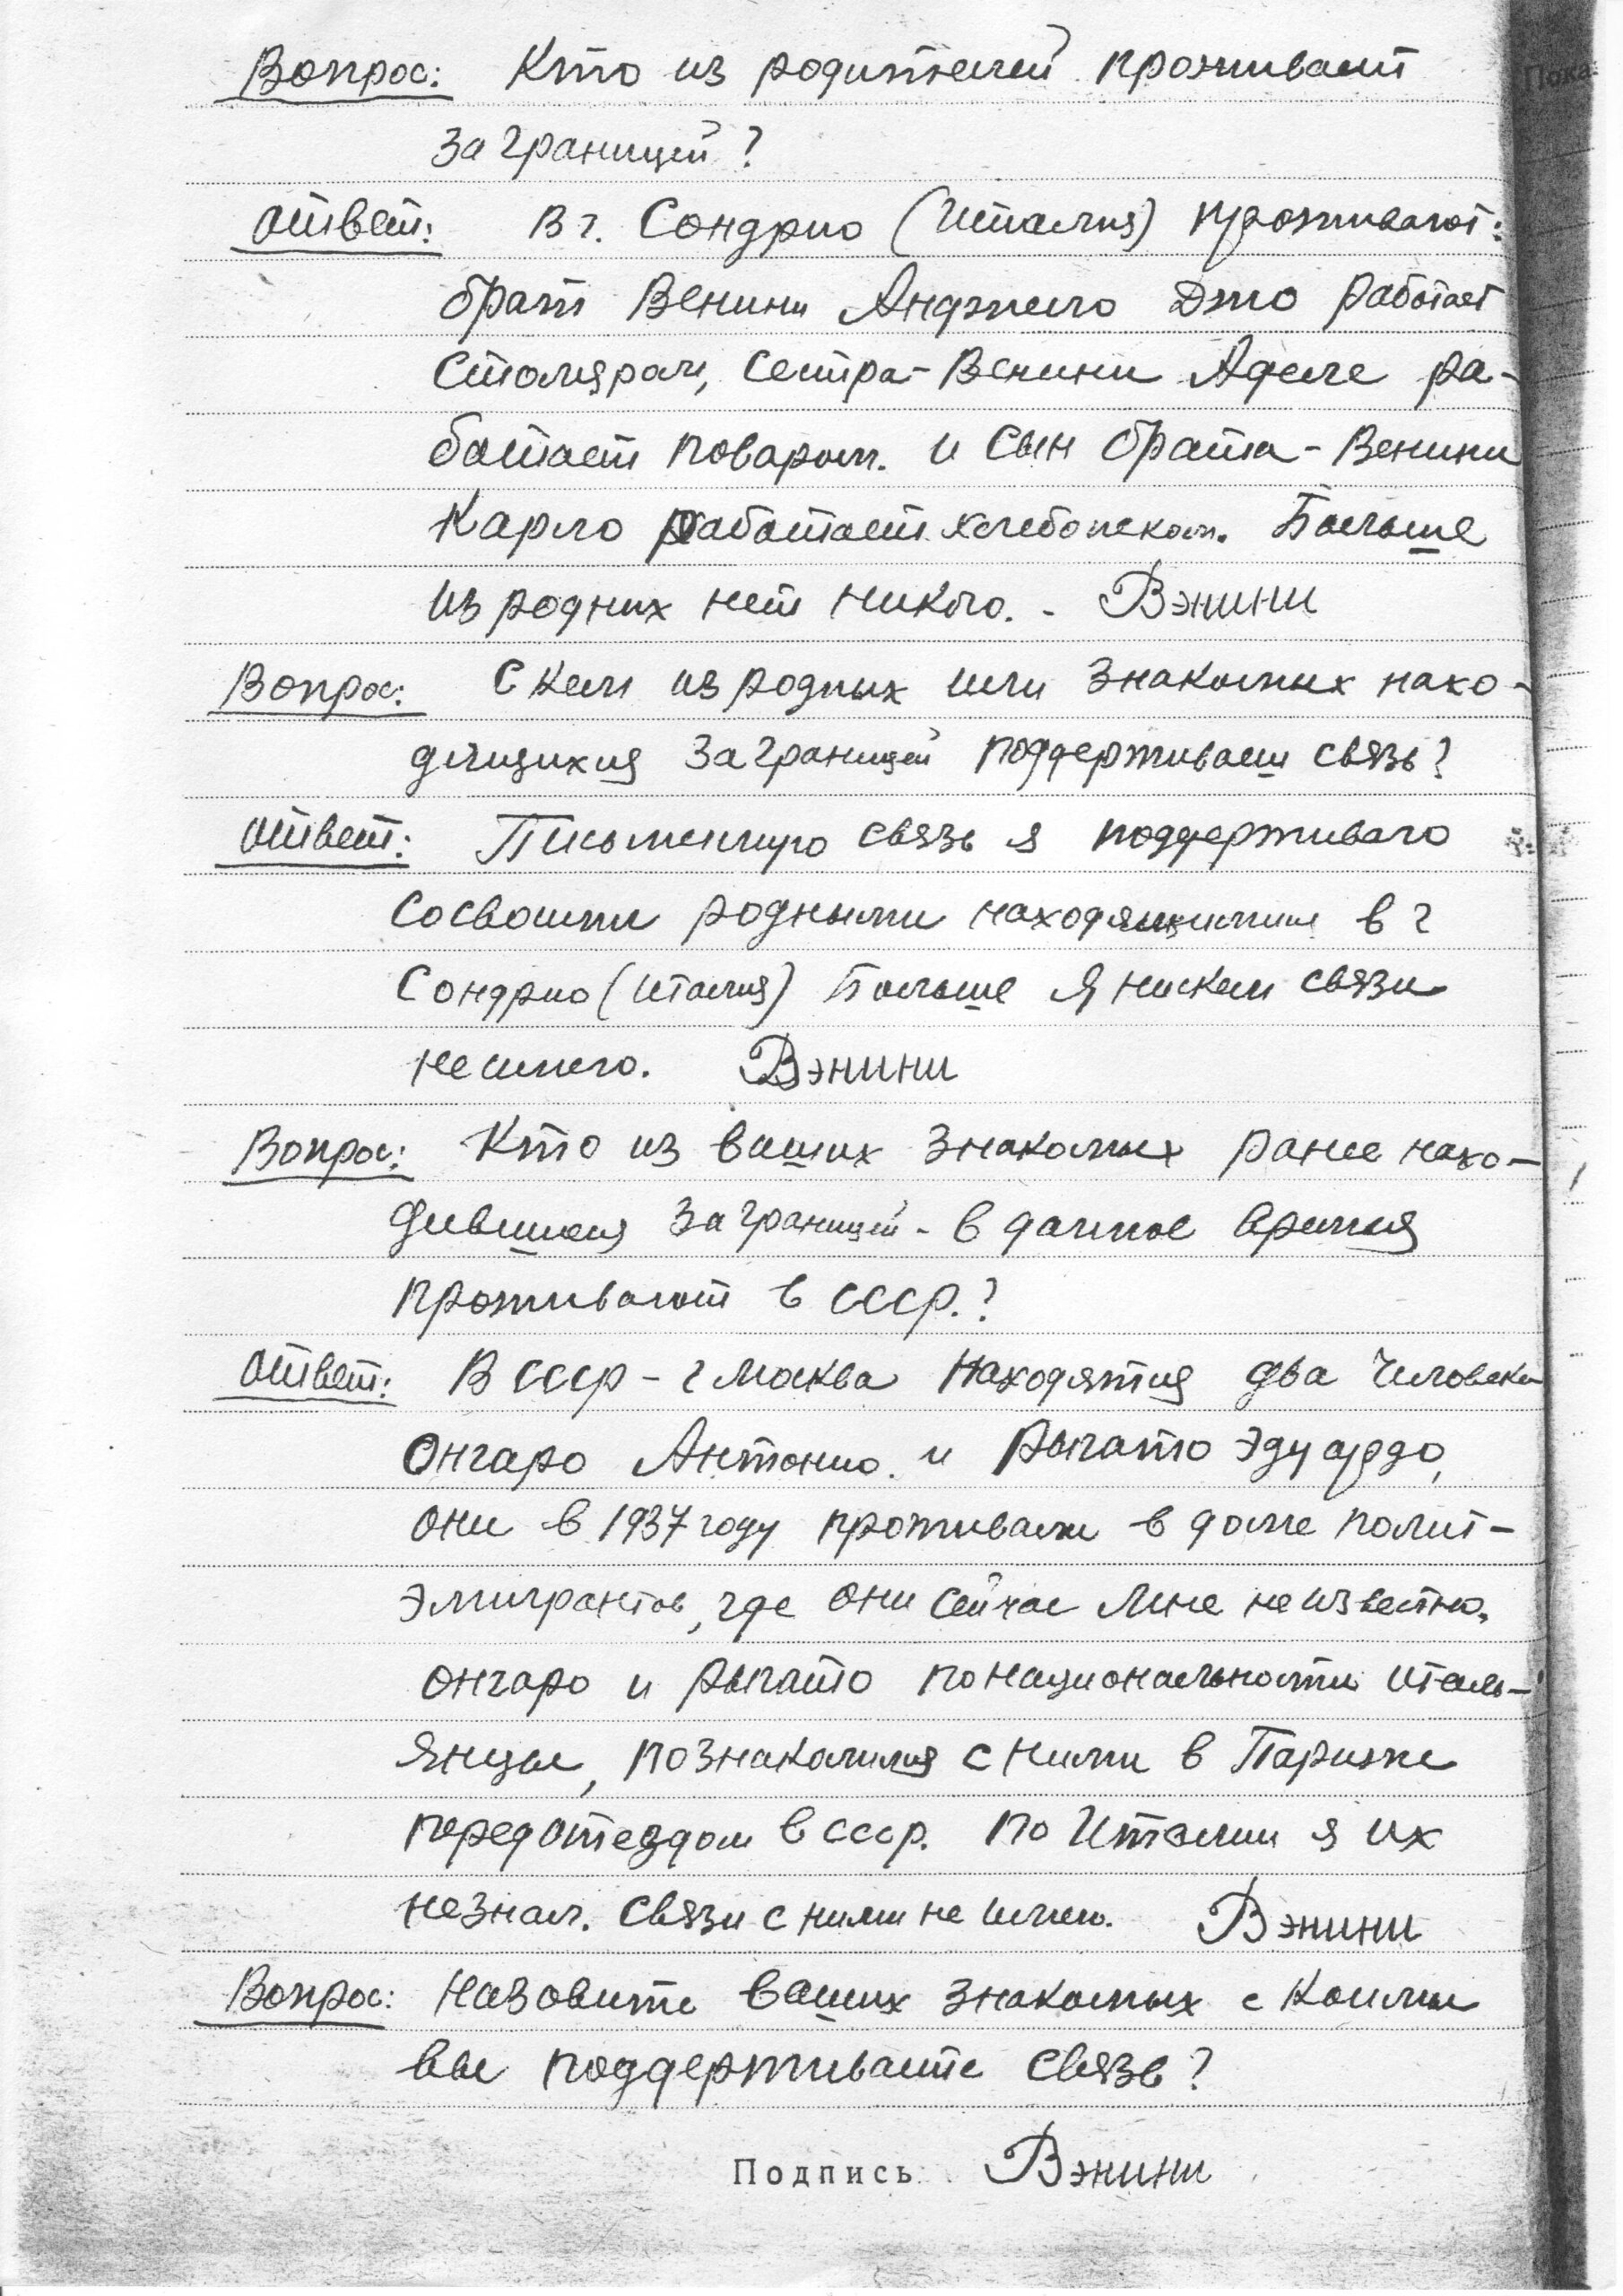 Вопрос: Кто из родителей проживает
заграницей?
Ответ: В г. Сондрио (Италия) проживают:
брат Венини Анджело Джо работает
столяром, сестра - Венини Аделе ра-
ботает поваром. и сын брата - Венини
Карло работает хлебопеком. Больше
из родных нет никого. - Вэнини
Вопрос: С кем из родных или знакомых нахо-
дящихся заграницей поддерживаеш связь?
Ответ: Письменную связь я поддерживаю
сосвоими родными находящимися в г
Сондрио (Италия) Больше я нискем связи
не имею. Вэнини
Вопрос: Кто из ваших знакомых ранее нахо-
дившихся заграницей - в данное время
проживают в СССР.?
Ответ: В СССР - г Москва находятся два человека
Онгаро Антонио. и Рыгато Эдуардо,
они в 1937 году проживали в доме полит-
эмигрантов, где они сейчас мне не известно.
Онгаро и Рыгато по национальности италь-
янцы, познакомился с ними в Париже
передотездом в СССР. По Италии я их
незнал. Связи с ними не имею. Вэнини
Вопрос: Назовите ваших знакомых с коими
вы поддерживаете связь?
Подпись Вэнини
Пока